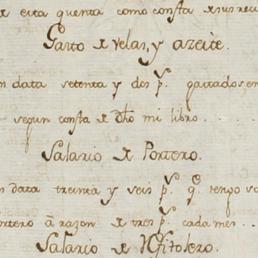 e esta quenta como consta de su reci
Gasto de velas, y azeite.
n data setenta y dos p.ˢ gastados en
segun consta de dho mi libro...
Salario de Portero.
n data treinta y seis p.ˢ q.ᵉ tengo
ortero à razon de tres p.ˢ cada mes...
Salario de